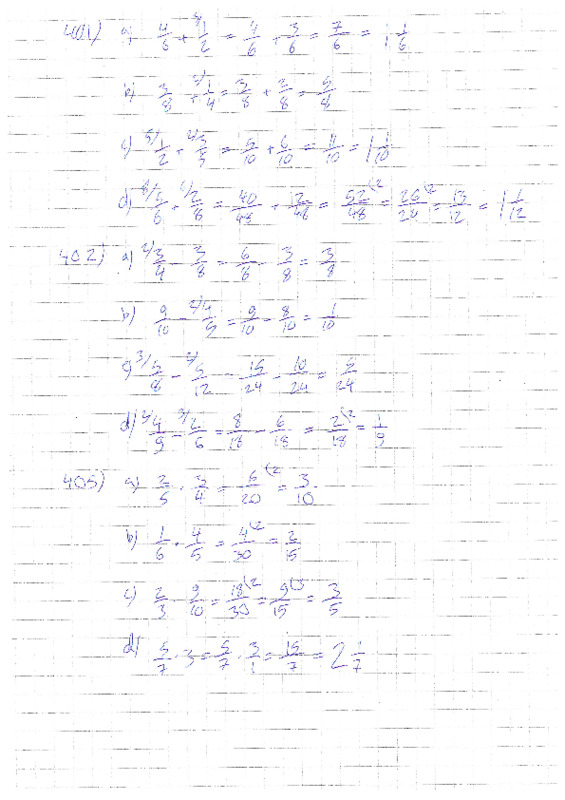 401) a) 4/6 + 3/1/2 = 4/6 + 3/6 = 7/6 = 1 1/6
b) 3/8 + 2/1/4 = 3/8 + 3/8 = 5/8
c) 5/1/2 + 2/3/5 = 5/10 + 6/10 = 11/10 = 1 1/10
d) 8/5/6 + 6/2/8 = 40/48 + 12/48 = 52/48 (2 = 26/24 (2 = 13/12 = 1 1/12
402) a) 2/3/4 - 3/8 = 6/8 - 3/8 = 3/8
b) 9/10 - 2/4/5 = 9/10 - 8/10 = 1/10
c) 3/5/8 - 2/5/12 = 15/24 - 10/24 = 5/24
d) 2/4/9 - 3/2/6 = 8/18 - 6/18 = 2/18 (2 = 1/9
405) a) 2/5 · 3/4 = 6/20 (2 = 3/10
b) 1/6 · 4/5 = 4/30 (2 = 2/15
c) 2/3 · 9/10 = 18/30 (2 = 9/15 (3 = 3/5
d) 5/7 · 3 = 5/7 · 3/1 = 15/7 = 2 1/7